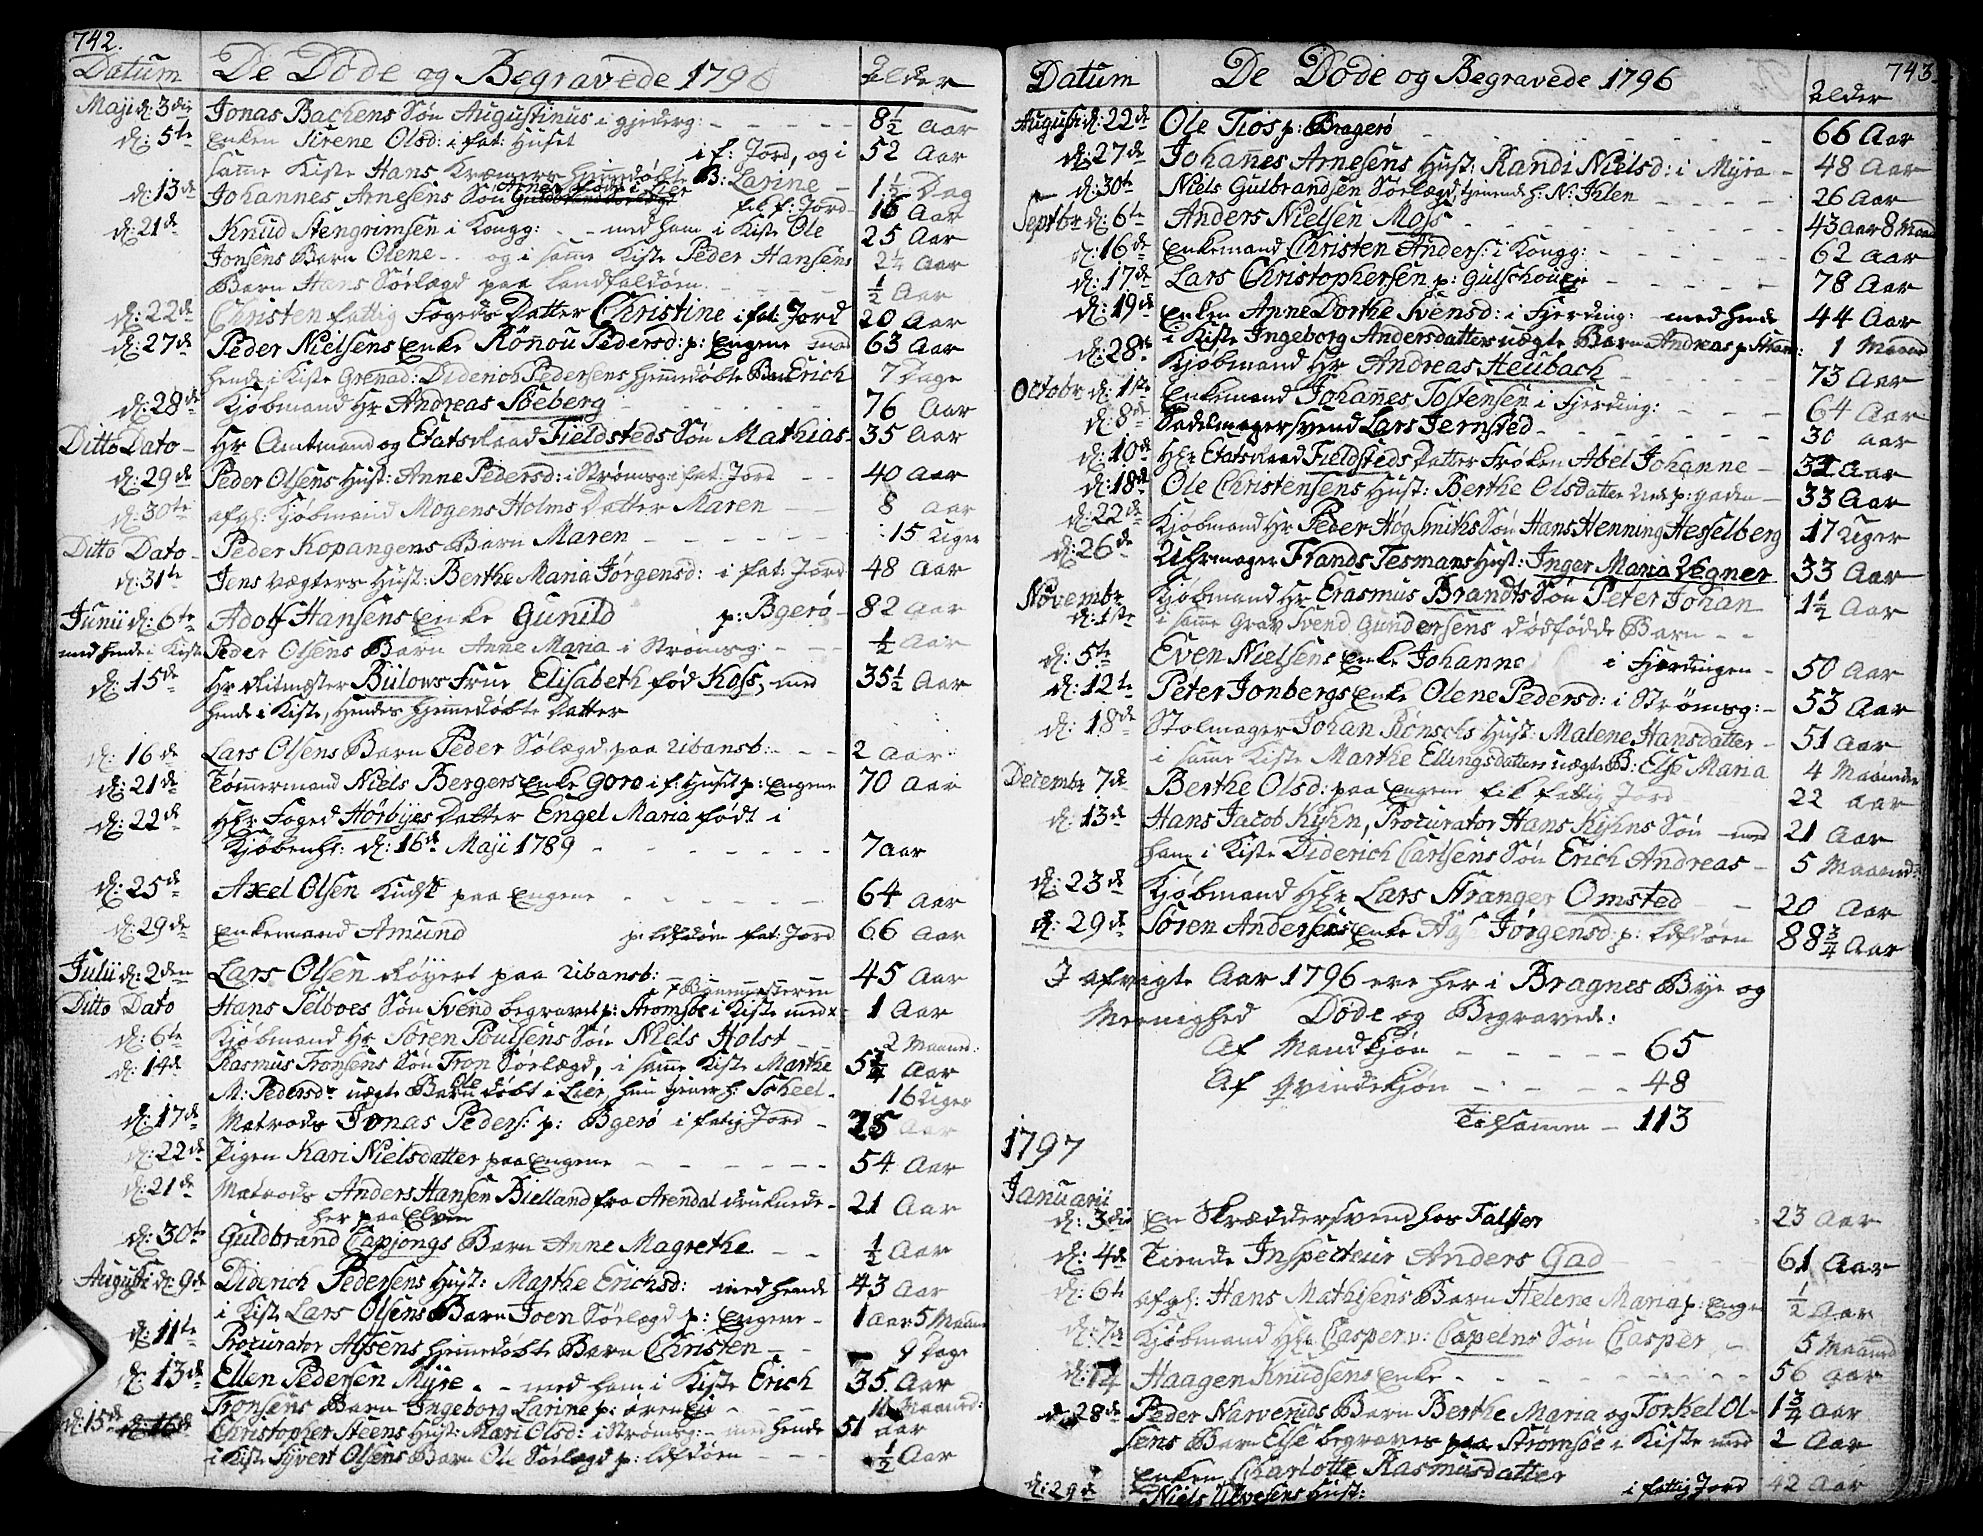 742.
Datum De Döde og Begravede 1796 Alder
Maji d: 3die Jonas Bachens Søn Augustinus i gjederg: 8½ Aar
d: 5te Enken Sirene Olsd: i fat: Huset i f: Jord, og i 52 Aar
samme Kiste Hans Kræmers hjemmedøbte B: Larine 1½ Dag
d: 13de Johannes Arnesens Søn fik f: Jord 16 Aar
d: 21de Knud Stengrimsen i Kongg: - - med ham i Kiste Ole 25 Aar
Jonsens Barn Olene - og i samme Kiste Peder Hansens 2¼ Aar
Barn Hans Sørlægd paa Landfaldøen ½ Aar
d: 22de Christen fattig Fogeds Datter Christine i fat: Jord 20 Aar
d: 27de Peder Nielsens Enke Rönou Pedersd: p: Engene med 63 Aar
hende i Kiste Grenad: Diderich Pedersens hjemmedøbte Barn Erich 7 Dage
d: 28de Kjøbmand Hr Andreas Søeberg 76 Aar
Ditto Dato Hr Amtmand og Etatsraad Fieldsteds Søn Mathias 35 Aar
d: 29de Peder Olsens Hust: Anne Pedersd: i Strømsg: fat: Jord 40 Aar
d: 30te afgl: Kjøbmand Mogens Holms Datter Maren 8 aar
Ditto Dato Peder Kopangens Barn Maren 15 Uger
d: 31te Jens Vægters Hust: Berthe Maria Jørgensd: i fat: Jord 48 Aar
Junii d: 6te Adolf Hansens Enke Gunild p: Bgerø 82 Aar
med hende i Kiste Peder Olsens Barn Anne Maria i Strømsg: ½ Aar
d: 15de Hr Ritmester Bülows Frue Elisabeth fød Koss, med 35½ Aar
hende i Kiste, Hendes hjemmedøbte Datter
d: 16de Lars Olsens Barn Peder Sølægd paa Tibansb: 2 Aar
d: 21de Tømmermand Niels Bergers Enke Goro i f: Hust p: Engene 70 Aar
d: 22de Hr Foged Hörbyes Datter Engel Maria født i
Kjøbenh: d: 16de Maji 1789 7 aar
d: 25de Axel Olsen Kudsk paa Engene 64 Aar
d: 29de Enkemand Amund p: Ldfdøen fat: Jord 66 Aar
Julii d: 2den Lars Olsen Røyert paa Tibansb: 45 Aar
x Baumesteren
Ditto Dato Hans Selboes Søn Svend begravet p: Strømsøe i Kiste med x 1 Aar
d: 6te Kjøbmand Hr Søren Poulsens Søn Niels Holst 2 Maaned:
d: 14de Rasmus Tronsens Søn Tron Sørlægd, i samme Kiste Marthe 5¼ Aar
M: Pedersdr uægte Barn Ole døbt i Lier, hun tjener h: Scheel 16 Uger
d: 17de Matrods Jonas Peders: p: Bgerø i fatig Jord 25 Aar
d: 22de Pigen Kari Nielsdatter paa Engene 54 Aar
d: 21de Matrods Anders Hansen Bielland fra Arendal druknede 21 Aar
her paa Elven
d: 30te Guldbrand Capjongs Barn Anne Magrethe ½ Aar
Augusti d: 9de Diderich Pedersens Hust: Marthe Erichsd: med hende 43 Aar
i Kiste Lars Olsens Barn Joen Sørlægd p: Engene 1 Aar 5 Maaned
d: 11te Procurator Alsens hjemmedøbte Barn Christen 9 Dage
d: 13de Ellen Pedersen Myre - - med ham i Kiste Erich 35 Aar
Tronsens Barn Ingeborg Larine p: Ørenle Maaned:
d: 15de Christopher Steens Hust: Mari Olsd: i Strømsg: - med hende 51 aar
i Kiste Syvert Olsens Barn Ole Sørlægd p: Ldfdøen ½ Aar
743
Datum De Döde og Begravede 1796 Alder
August d: 22de Ole Tios p: Bragerø 66 Aar
d: 27de Johannes Arnesens Hust: Randi Nielsd: i Myra 48 Aar
d: 30te Niels Gulbrandsen Sørlægd, tjenende h: N: Ihlen 26 Aar
Septbr d: 6te Anders Nielsen Moss 43 Aar 8 Maan
d: 16de Enkemand Christen Anders: i Kongg: 62 Aar
d: 17de Lars Christophersen p: Gulschouen 78 Aar
d: 19de Enken Anne Dorthe Svensd: i Fjerding: med hende 44 Aar
i Kiste Ingeborg Andersdatters uægte Barn Andreas p: Strøm: 1 Maaned
d: 28de Kjøbmand Hr Andreas Heubach 73 Aar
Octobr d: 1ste Enkemand Johannes Tostensen i Fjerding: 64 Aar
d: 8de Sadelmagersvend Lars Jernsted 30 aar
d: 10de Hr Etatsraad Fieldsteds Datter Frøken Abel Johanne 31 Aar
d: 18de Ole Christensens Hust: Berthe Olsdatter Ned p: gaden 33 Aar
d: 22de Kjøbmand Hr Peder Høg Smiths Søn Hans Henning Hesselberg 17 Uger
d: 26de Uhrmager Frands Tesmans Hust: Inger Maria Wegner 33 Aar
Novembr d: 1ste Kjøbmand Hr Erasmus Brandts Søn Peter Johan 1½ Aar
i samme Grav Svend Gundersens dødfødde Barn
d: 5te Even Nielsens Enke Johanne i Fjerdingen 50 Aar
d: 12te Peter Jonbergs Enke Olene Pedersd: i Strømsg: 53 Aar
d: 18de Stolmager Johan Rönschs Hust: Malene Hansdatter 51 Aar
i samme Kiste Marthe Ellingsdatters uægte B: Else Maria 4 Maaneder
Decembr 7de Berthe Olsd: paa Engene fik fattig Jord 22 aar
d: 13de Hans Jacob Kyhn, Procurator Hans Kyhns Søn med 21 Aar
ham i Kiste Diderich Carlsens Søn Erich Andreas 5 Maaned:
d: 23de Kjøbmand Hr Lars Stranger Omsted 20 Aar
d: 29de Søren Andersens Enke Jørgensd: p: Ldfdøen 88¾ Aar
I afvigte Aar 1796 ere her i Bragnes Bye og
Meenighed Döde og Begravede:
Af Mandkjøn 65
Af Qvindekjøn 48
Tilsammen 113
1797
Januarii
d: 3die En Skræddersvend hos Falsen 23 Aar
d: 4de Tiende Inspecteur Anders Gad 61 Aar
d: 6te afgl: Hans Mathisens Barn Helene Maria p: Engen ½ Aar
d: 7de Kjøbmand Hr Casper v: Capelns Søn Casper 5 Maaned
d: 14 Haagen Knudsens Enke 56 aar
d: 28de Peder Narveruds Barn Berthe Maria og Torkel Ol- 1¾ Aar
sens Barn Else begraves paa Strømsøe i Kiste med 2 Aar
Enken Charlotte Rasmusdatter
d: 29de Niels Ulvesens Hust: i fattig Jord 42 Aar